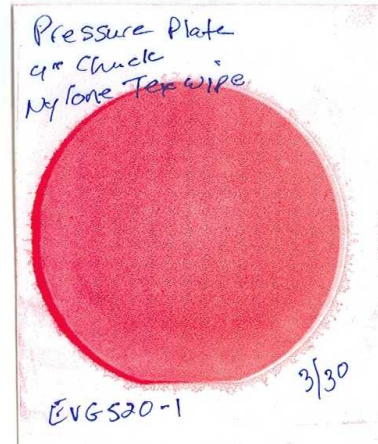 Pressure Plate
4" Chuck
Nylone Tex wipe
3/30
EVG520-1